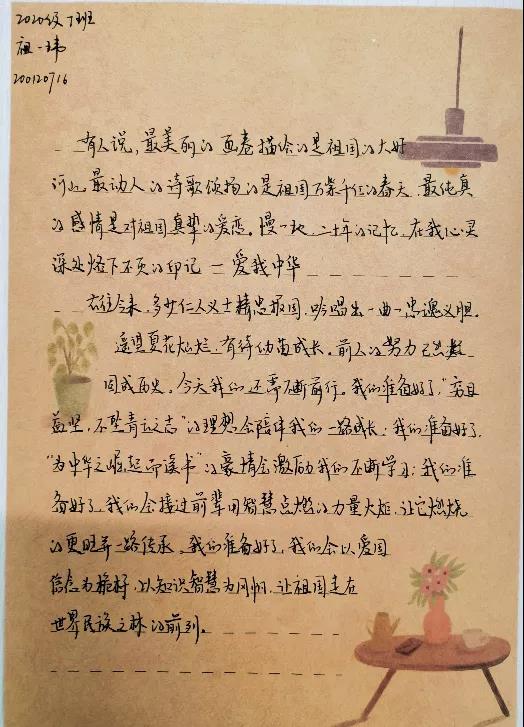 2020级7班
祖一玮
200120716
有人说，最美丽的画卷描绘的是祖国的大好
河山，最动人的诗歌颂扬的是祖国万紫千红的春天，最纯真
的感情是对祖国真挚的爱恋。慢一地，二十年的记忆，在我心灵
深处烙下不灭的印记—爱我中华
古往今来，多少仁人义士精忠报国，吟唱出一曲一忠魂义胆。
遥望夏花灿烂，有待幼苗成长。前人的努力已
固成历史。今天我们还需不断前行。我们准备好了，“穷且
益坚，不坠青云之志”的理想会陪伴我们一路成长；我们准备好了，
“为中华之崛起而读书”的豪情会激励我们不断学习；我们准
备好了，我们会接过前辈用智慧点燃的力量火炬，让它燃烧
的更旺并一路传承。我们准备好了，我们会以爱国
信念为桅杆，以知识智慧为风帆，让祖国走在
世界民族之林的前列。